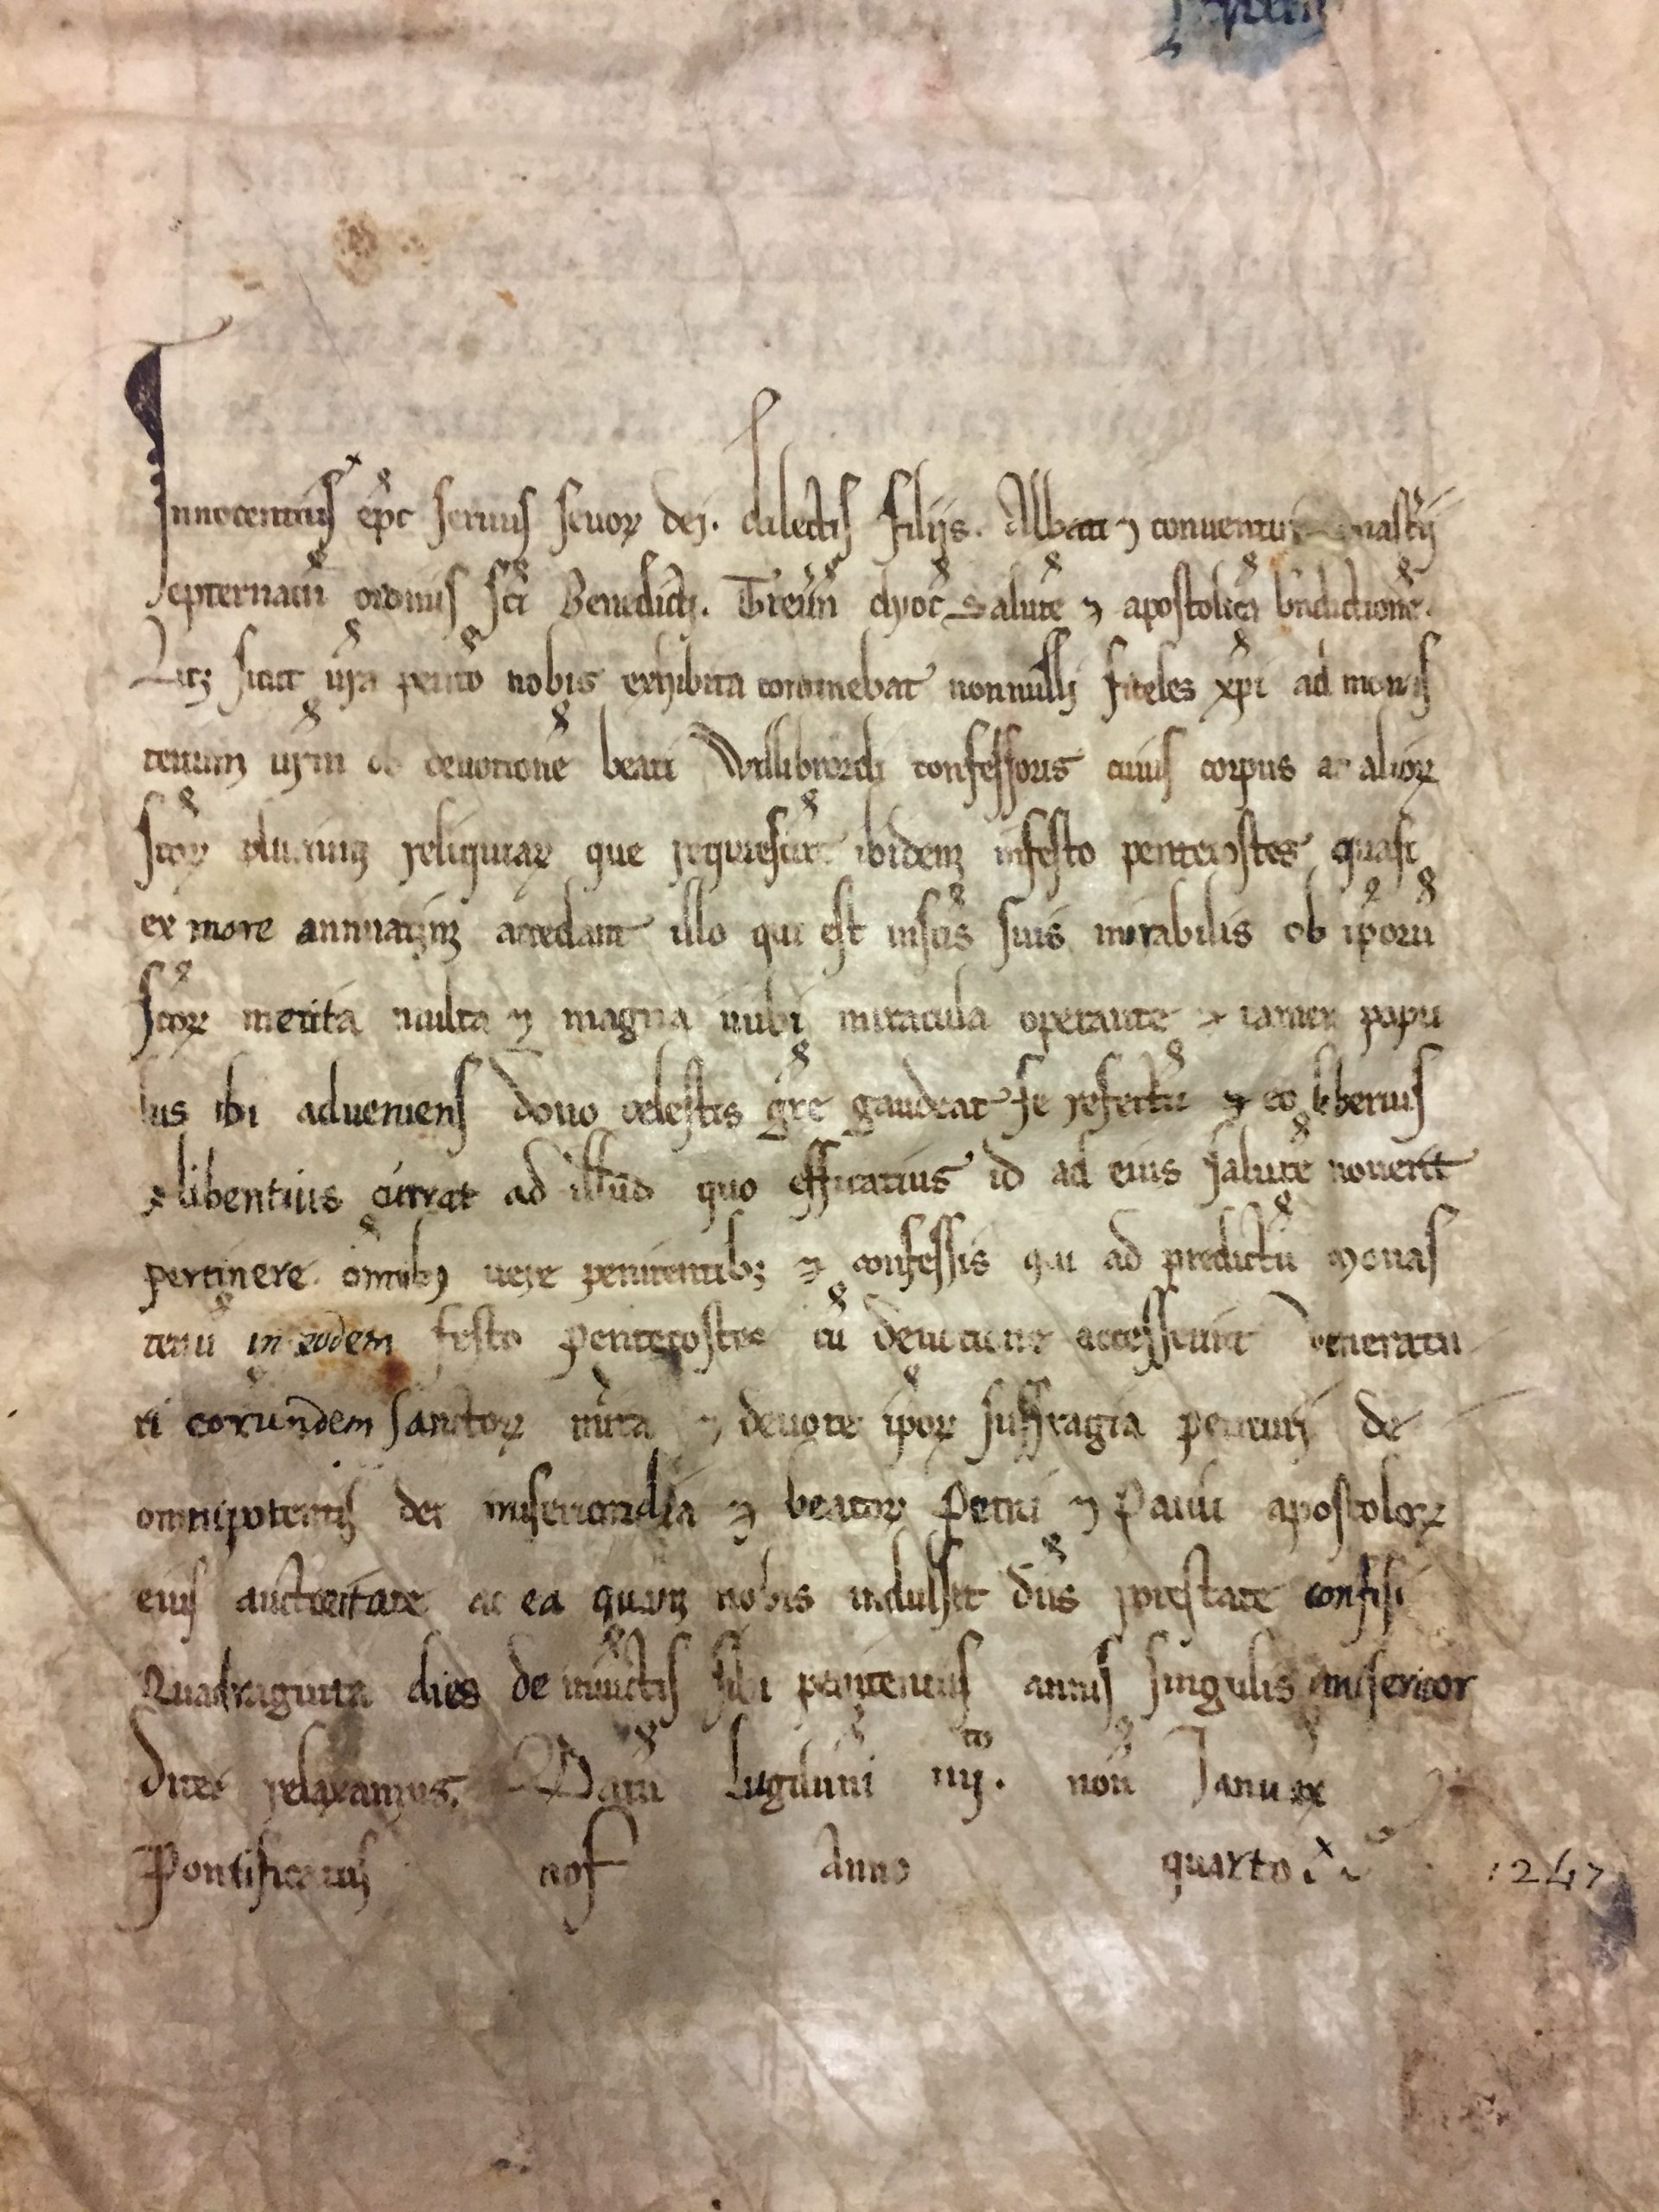 Innocentius ep̄c seruus seruoꝝ dei. dilectis filijs. Abbati ⁊ conuentui monastȳ
Epternacen̄ ordinis sc̄i Benedicti. Treuen̄ dyoc̄ Salutē ⁊ apostolicā bn̄dictionē.
Licꝫ sicut vr̄a petitō nobis exhibita continebat nonnulli fideles xp̄i ad monas
terium vr̄m ob deuotionē beati Willibrordi confessoris cuius corpus ac alioꝝ
sc̄oꝝ plurimū reliquiaꝝ que requiescūt ibidem infesto pentecostes quasi
ex more annuatim accedant illo qui est insc̄is suis mirabilis ob ip̄orū
sc̄oꝝ merita multa ⁊ magna inibi miracula operante ⁊ tamen popu
lus ibi adueniens dono celestis gr̄e gaudeat se refectū ⁊ eo liberius
⁊ libentius currat ad illud quo efficatius id ad eius salutē nouerit
pertinere om̄ibꝫ uere penitentibꝫ ⁊ confessis qui ad predictū monas
teriū in eodem festo Pentecostes cū deuotione accesserint Veneratu
ri eorundem Sanctoꝝ mīta ⁊ deuote ip̄oꝝ suffragia petituri de
omnipotentis dei misericordia ⁊ beatoꝝ Petri ⁊ Pauli apostoloꝝ
eius auctoritate ac ea quam nobis indulsit dn̄s prestare confisi
Quadraginta dies de iniūctis sibi penitentiis annis singulis misericor
diter relaxamus. Datū Lugduni iiij.to non̄ Januar
Pontificatus nos̄ Anno quarto 1247